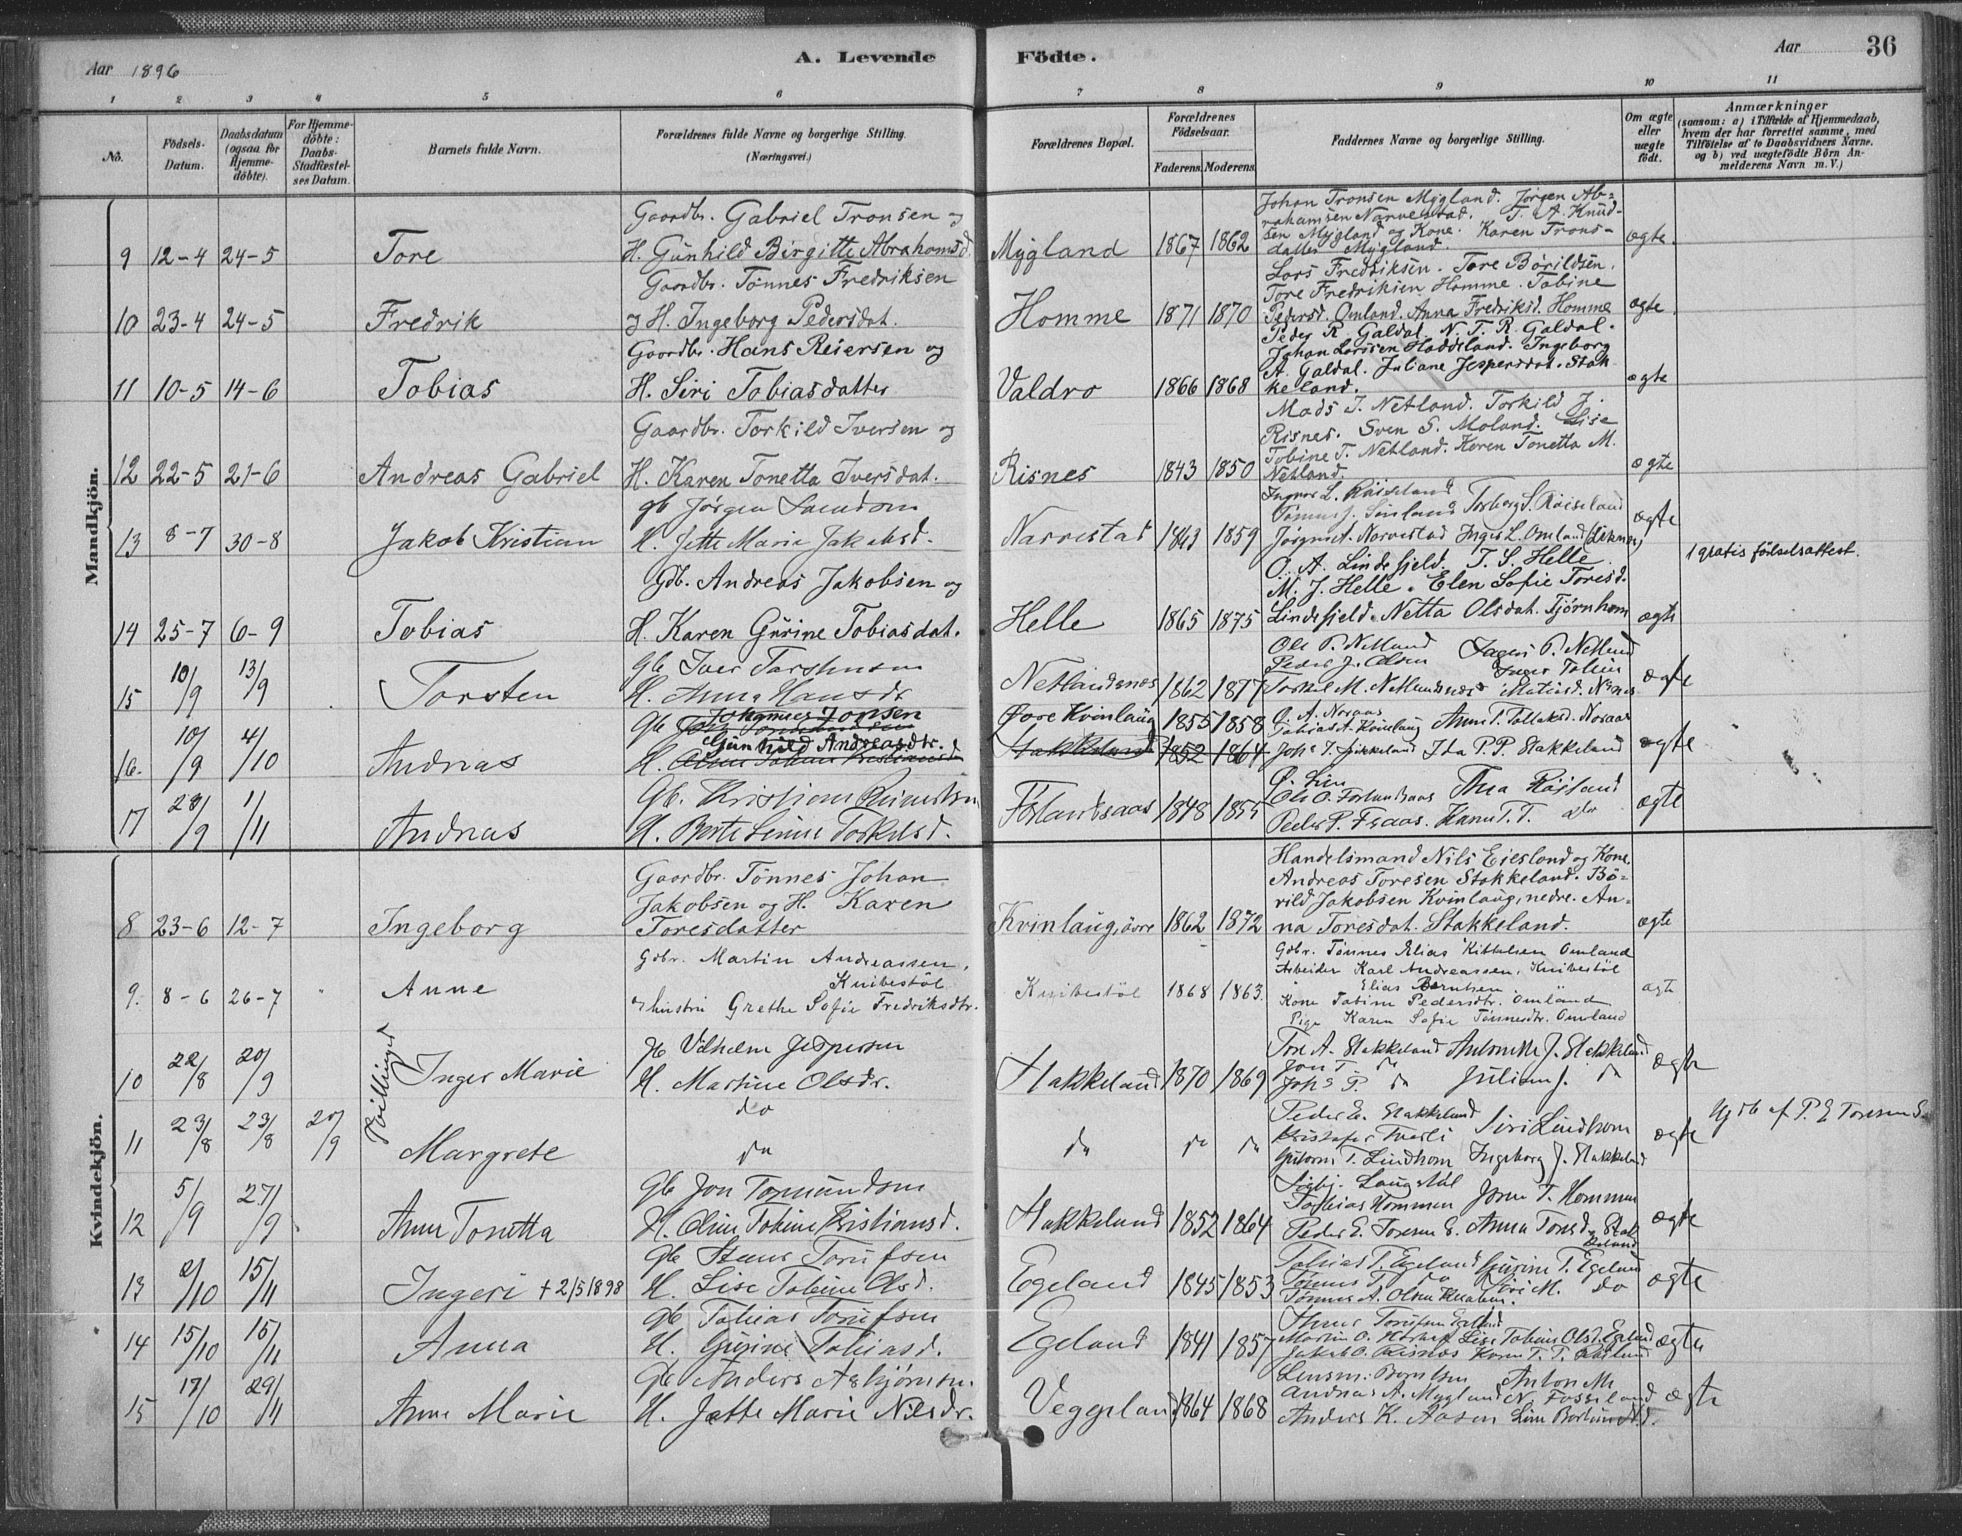 Aar 1896
A. Levende
Födte.
Aar
36
1 2 3 4 5 6 7 8 9 10 11
No.
Födsels-
Datum.
Daabsdatum
(ogsaa for
Hjemme-
döbte).
For Hjemme-
döbte:
Daabs-
Stadfæstel-
ses Datum.
Barnets fulde Navn.
Forældrenes fulde Navne og borgerlige Stilling.
(Næringsvei.)
Forældrenes Bopæl.
Forældrenes
Födselsaar.
Faderens. Moderens.
Faddernes Navne og borgerlige Stilling.
Om ægte
eller
uægte
födt.
Anmærkninger
(saasom: a) i Tilfælde af Hjemmedaab,
hvem der har forrettet samme, med
Tilföielse af to Daabsvidners Navne,
og b) ved uægtefödte Börn An-
melderens Navn m. V.)
Mandkjön.
9 12-4 24-5 Tore
Gaardbr. Gabriel Tronsen og
H. Gunhild Birgitte Abrahamsd.
Mygland 1867 1862
Johan Tronsen Mygland. Jørgen Ab-
rahamsen Narvestad. T. A. Knud-
sen Mygland og Kone. Karen Trons-
datter Mygland.
ægte.
10 23-4 24-5 Fredrik
Gaardbr. Tønnes Fredriksen
og H. Ingeborg Pedersdat.
Homme 1871 1870
Lars Fredriksen. Tore Børildsen.
Tore Fredriksen Homme. Tobine
Pedersd. Omland. Anna Fredriksd. Homme
ægte.
11 10-5 14-6 Tobias
Gaardbr. Hans Reiersen og
H. Siri Tobiasdatter
Valdro 1866 1868
Peder R. Galdal. N. T. R. Galdal.
Johan Larssen Haddeland. Ingeborg
A. Galdal. Juliane Jespersdat. Stak-
keland.
ægte
12 22-5 21-6 Andreas Gabriel
Gaardbr. Torkild Iversen og
H. Karen Tonetta Iversdat.
Risnes 1843 1850
Mads I. Netland. Torkild J.
Risnes. Sven S. Moland. Lise
Tobine T. Netland. Karen Tonetta M.
Netland.
ægte
13 8-7 30-8 Jakob Kristian
gb Jörgen
H. Jette Marie Jakobsd.
Narvestad 1843 1859
L. Röiseland Torborg S. Röiseland
Narvestad Inger L. Omland
ægte
1 gratis fødselsattest.
14 25-7 6-9 Tobias
Gdb. Andreas Jakobsen og
H. Karen Gurine Tobiasdat.
Helle 1865 1875
O. A. Lindefjeld. T. S. Helle.
M. J. Helle. Elen Sofie Toresd.
Lindefjeld. Netta Olsdat. Tjørnhom
ægte
15 10/9 13/9 Torsten
gb Iver Torstensen
H. Anna Hansdr
Netlandsnes 1862 1877
Ole P. Netland P. Netland
Peder J. Olsen
Torkel M. Netlandsnes
ægte
16. 10/9 4/10 Andreas
gb Johannes Jonsen
H. Gunhild Andreasdtr.
Øvre Kvinlaug 1855 1858
Stakkeland 1852 1864
O. A. Noraas
Tobias A. Kvinlaug Anne T. Noraas
Johs T. Stakkeland Ida P. P. Stakkeland
ægte
17 28/9 1/11 Andreas
gb. Kristian
H. Berte Torkelsd.
1848 1855
Ole O.
Peder P. Karen T. T. do
ægte
Kvindekjön.
8 23-6 12-7 Ingeborg
Gaardbr. Tønnes Johan
Jakobsen og H. Karen
Toresdatter
Kvinlaug, øvre 1862 1872
Handelsmand Nils Eiesland og Kone.
Andreas Toresen Stakkeland. Bø-
rild Jakobsen Kvinlaug, nedre. An-
na Toresdat. Stakkeland.
ægte
9. 8-6 26-7 Anne
Gdbr. Martin Andreassen,
Knibestöl
Hustru Grethe Sofie Fredriksdtr.
Knibestöl 1868 1863.
Gdbr. Tönnes Elias Kittelsen Omland
Arbeider Karl Andreassen, Knibestöl
Elias Berntsen
Kone Tobine Pedersdtr. Omland
Pige Karen Sofie Tönnesdtr. Omland
ægte
Tvillinger
10 22/8 20/9 Inger Marie
gb Vilhelm Jespersen
H. Martine Olsdr.
Stakkeland 1870 1869
Tore A. Stakkeland Antonette J. Stakkeland
Jon T. do
Johs P. do Juliane J. do
ægte
11 23/8 23/8 20/9 Margrete
do
do
do do do
Peder E. Stakkeland
Kristofer Siri Lindhom
Gutorm T. Lindhom Ingeborg J. Stakkeland
ægte
Hjdb af P. E. Toresen
12 5/9 27/9 Anne Tonetta
gb Jon Tormundsen
H. Oline Tobine Kristiansd.
Stakkeland 1852 1864
Tobias Hommen Joren T. Hommen
Peder E. Toresen Anna Tonsd. Stak-
keland
ægte
13 2/10 15/11 Ingeri + 2/5 1898
gb
H. Lise Tobine Olsd.
Egeland 1845 1853
Tobias T. Egeland Gurine T. Egeland
Tönnes T. do Siri M. do
Tønnes A. Olsen
ægte
14 15/10 15/11 Anna
gb Tobias
H. Gurine Tobiasd.
Egeland 1841 1857
Martin O. Lise Tobine Olsd. Egeland
Jakob O. Risnes Karen T. T.
ægte
15 17/10 29/11 Anne Marie
gb Anders Asbjörnsen
H. Jette Marie Nilsdr.
Veggeland 1864 1868
Andreas A. Mygland
Anders K. Aasen
ægte